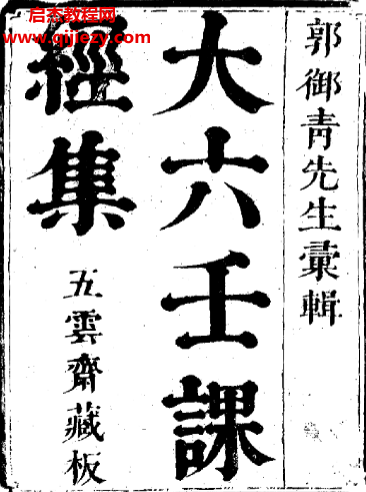 启杰教程网
www.qijiezy.com
郭御青先生彙輯
大六壬課
經集
五雲齋藏板